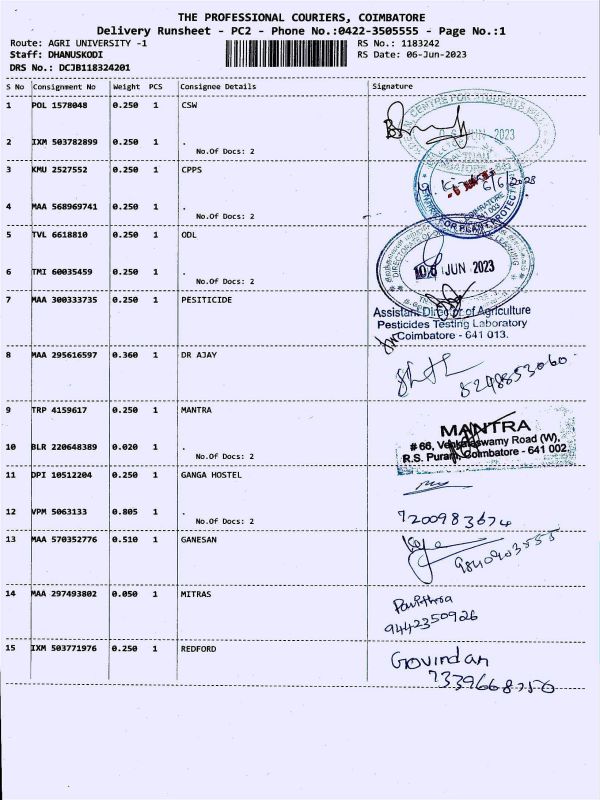 THE PROFESSIONAL COURIERS, COIMBATORE
Delivery Runsheet - PC2 - Phone No.:0422-3505555 - Page No.:1
Route: AGRI UNIVERSITY -1
RS No.: 1183242
Staff: DHANUSKODI
RS Date: 06-Jun-2023
DRS No.: DCJB118324201
S No Consignment No Weight PCS Consignee Details Signature
1 POL 1578048 0.250 1 CSW
06 JUN 2023
2 IXM 503782899 0.250 1 .
No.Of Docs: 2
3 KMU 2527552 0.250 1 CPPS
6/6/2023
4 MAA 568969741 0.250 1 .
No.Of Docs: 2
5 TVL 6618810 0.250 1 ODL
06 JUN 2023
6 TMI 60035459 0.250 1 .
No.Of Docs: 2
7 MAA 300333735 0.250 1 PESITICIDE
Assistant Director of Agriculture
Pesticides Testing Laboratory
Coimbatore - 641 013.
8 MAA 295616597 0.360 1 DR AJAY
8248853060
9 TRP 4159617 0.250 1 MANTRA
MANTRA
# 66, Venkataswamy Road (W),
R.S. Puram, Coimbatore - 641 002
10 BLR 220648389 0.020 1 .
No.Of Docs: 2
11 DPI 10512204 0.250 1 GANGA HOSTEL
12 VPM 5063133 0.805 1 .
No.Of Docs: 2
7200983674
13 MAA 570352776 0.510 1 GANESAN
9840903555
14 MAA 297493802 0.050 1 MITRAS
Pavithra
9442350926
15 IXM 503771976 0.250 1 REDFORD
Govindan
7339668250